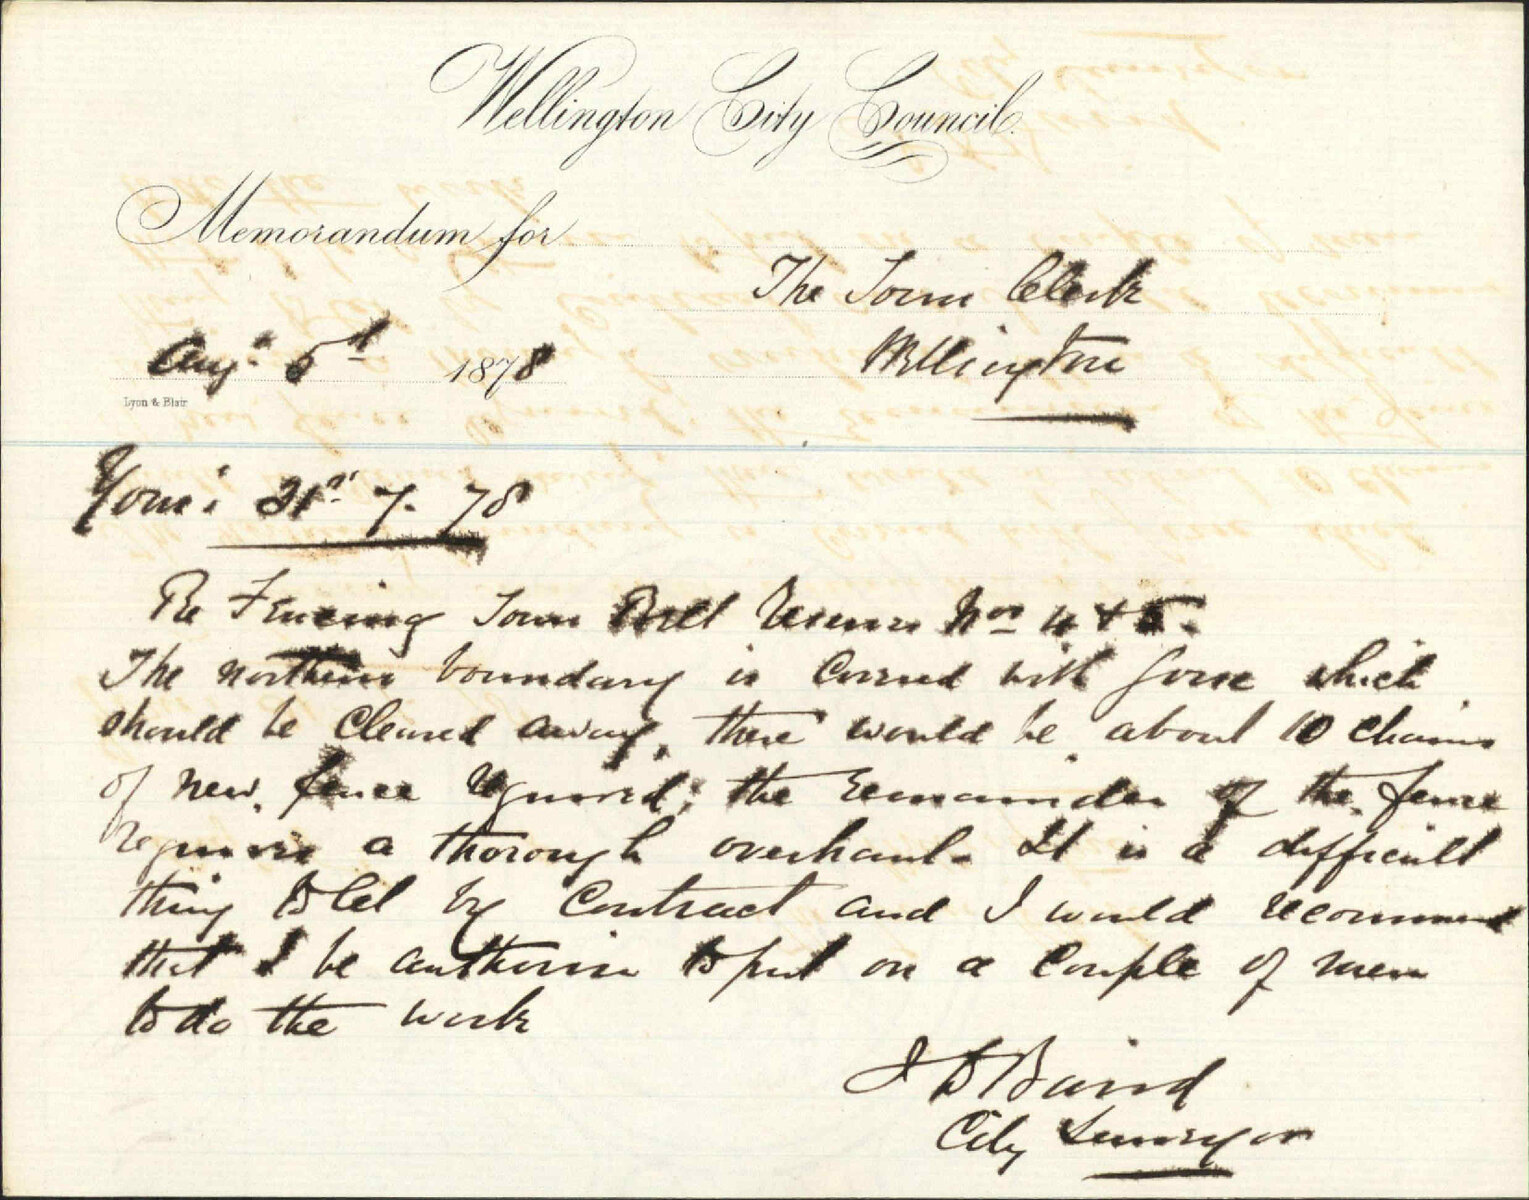 Wellington City Council.
Memorandum for
The Town Clerk
Wellington
Augt. 5th 1878
Lyon & Blair
Your's 31st 7. 78
Re Fencing Town Belt Reserves Nos 4 & 5.
The northern boundary is covered with gorse which
should be cleared away, there would be about 10 chains
of new fence required; the remainder of the fence
requires a thorough overhaul. It is a difficult
thing to let by Contract and I would recommend
that I be authorise to put on a couple of men
to do the work
J D Baird
City Surveyor